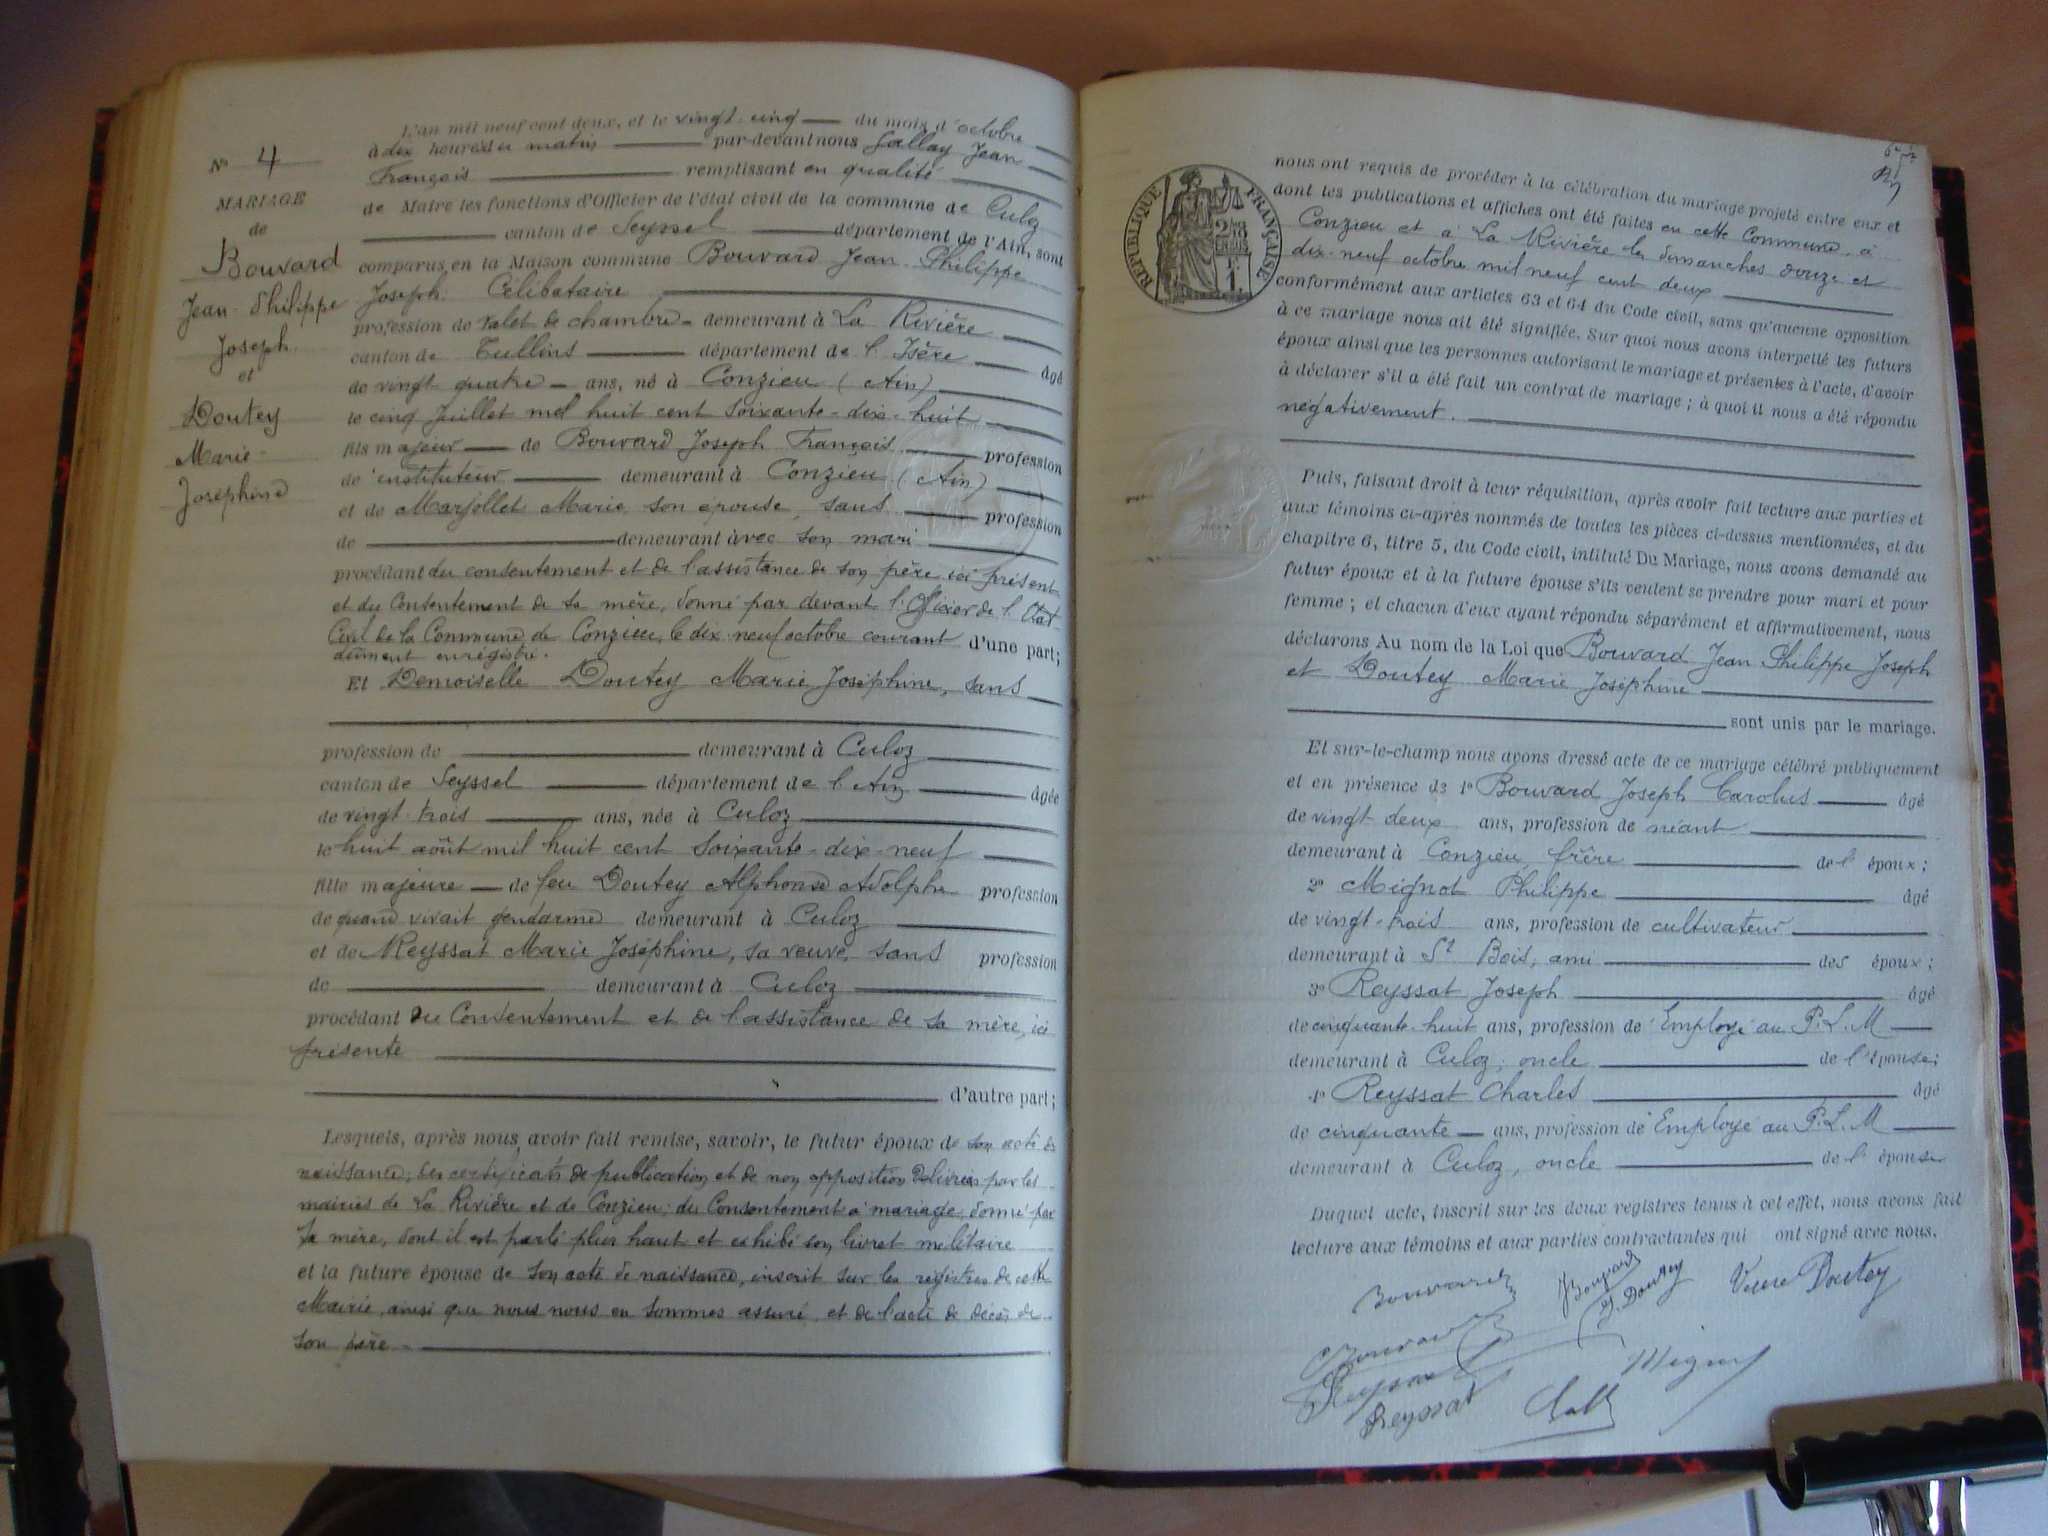 N° 4
MARIAGE
de
Bouvard
Jean-Philippe
Joseph
et
Doutey
Marie-
Joséphine
L'an mil neuf cent deux, et le vingt-cinq du mois d'octobre
à dix heures du matin par-devant nous Gallay Jean
François remplissant en qualité
de Maire les fonctions d'Officier de l'état civil de la commune de Culoz
canton de Seyssel département de l'Ain, sont
comparus en la Maison commune Bouvard Jean-Philippe
Joseph. Célibataire
profession de valet de chambre demeurant à La Rivière
canton de Tullins département de l'Isère âgé
de vingt quatre ans, né à Conzieu (Ain)
le cinq Juillet mil huit cent soixante-dix-huit
fils majeur de Bouvard Joseph François profession
d'instituteur demeurant à Conzieu (Ain)
et de Marjollet Marie, son épouse, sans profession
de demeurant avec son mari
procédant du consentement et de l'assistance de son père ici présent
et du Consentement de sa mère, donné par devant l'Officier de l'Etat
Civil de la Commune de Conzieu, le dix-neuf octobre courant d'une part;
dûment enregistré.
Et Demoiselle Doutey Marie Joséphine, sans
profession de demeurant à Culoz
canton de Seyssel département de l'Ain âgée
de vingt-trois ans, née à Culoz
le huit août mil huit cent soixante-dix-neuf
fille majeure de feu Doutey Alphonse Adolphe profession
de quand vivait gendarme demeurant à Culoz
et de Reyssat Marie Joséphine, sa veuve, sans profession
de demeurant à Culoz
procédant du Consentement et de l'assistance de sa mère, ici
présente
d'autre part;
Lesquels, après nous avoir fait remise, savoir, le futur époux de son acte de
naissance; des certificats de publication et de non opposition délivrés par les
mairies de La Rivière et de Conzieu; du Consentement à mariage, donné par
sa mère, dont il est parlé plus haut et exhibé son livret militaire
et la future épouse de son acte de naissance, inscrit sur les registres de cette
Mairie, ainsi que nous nous en sommes assuré, et de l'acte de décès de
son père
RÉPUBLIQUE FRANÇAISE
nous ont requis de procéder à la célébration du mariage projeté entre eux et
dont les publications et affiches ont été faites en cette Commune, à
Conzieu et à La Rivière les dimanches douze et
dix-neuf octobre mil neuf cent deux
conformément aux articles 63 et 64 du Code civil, sans qu'aucune opposition
à ce mariage nous ait été signifiée. Sur quoi nous avons interpellé les futurs
époux ainsi que les personnes autorisant le mariage et présentes à l'acte, d'avoir
à déclarer s'il a été fait un contrat de mariage; à quoi il nous a été répondu
négativement.
Puis, faisant droit à leur réquisition, après avoir fait lecture aux parties et
aux témoins ci-après nommés de toutes les pièces ci-dessus mentionnées, et du
chapitre 6, titre 5, du Code civil, intitulé Du Mariage, nous avons demandé au
futur époux et à la future épouse s'ils veulent se prendre pour mari et pour
femme; et chacun d'eux ayant répondu séparément et affirmativement, nous
déclarons Au nom de la Loi que Bouvard Jean Philippe Joseph
et Doutey Marie Joséphine
sont unis par le mariage.
Et sur-le-champ nous avons dressé acte de ce mariage célébré publiquement
et en présence de 1° Bouvard Joseph Carolus âgé
de vingt-deux ans, profession de néant
demeurant à Conzieu, frère de l'époux;
2° Mignot Philippe âgé
de vingt-trois ans, profession de cultivateur
demeurant à St Bois, ami des époux;
3° Reyssat Joseph âgé
de cinquante-huit ans, profession de Employé au P.L.M
demeurant à Culoz, oncle de l'épouse;
4° Reyssat Charles âgé
de cinquante ans, profession d'Employé au P.L.M
demeurant à Culoz, oncle de l'épouse
Duquel acte, inscrit sur les deux registres tenus à cet effet, nous avons fait
lecture aux témoins et aux parties contractantes qui ont signé avec nous.
Bouvard J Bouvard J. Doutey Veuve Doutey
C Bouvard
Reyssat Mignot
Reyssat